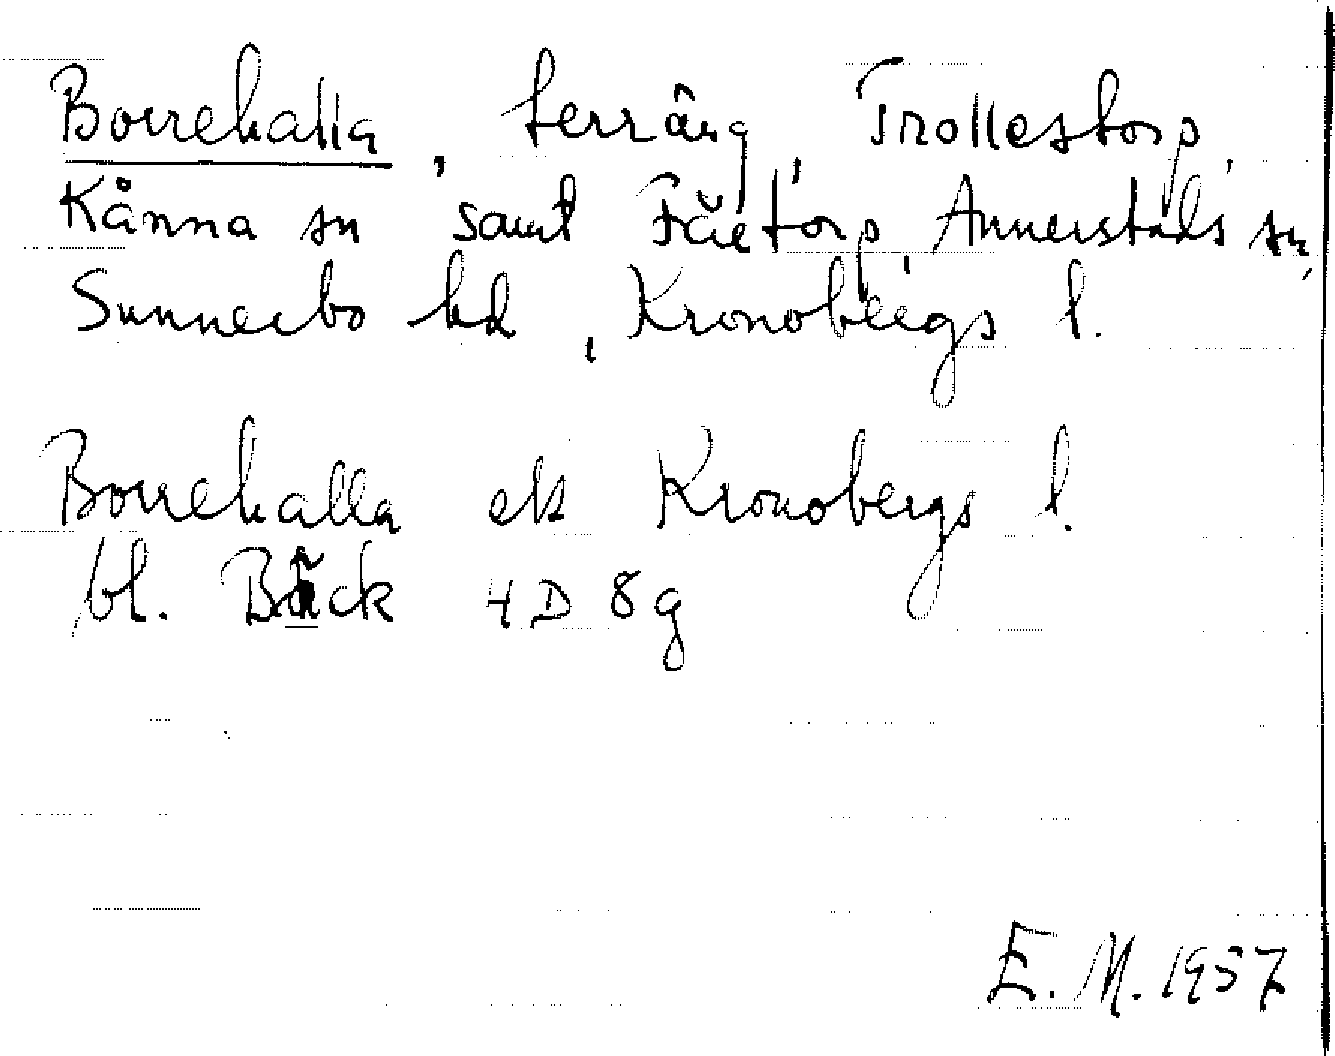 Borrehalla, terräng, Trollestorp,
Kånna sn samt Fäetorp, Annerstads sn,
Sunnerbo hd, Kronobergs l.
Borrehalla ek Kronobergs l.
bl. Bäck 4D 8g
E.M. 1957